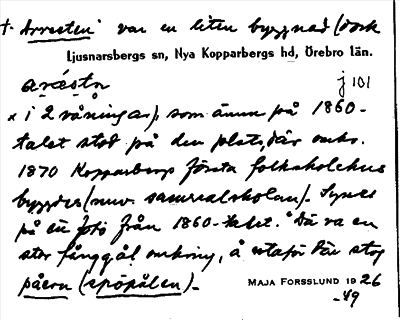 + "Arresten" var en liten byggnad (dock
Ljusnarsbergs sn, Nya Kopparbergs hd, Örebro län.
aréstn j 101
x i 2 våningar), som ännu på 1860-
talet stod på den plats, där omkr.
1870 Kopparbergs första folkskolehus
byggdes (nuv. samrealskolan). Synes
på ett foto från 1860-talet. "Dä va en
stor fånggål omkring, å utaför där stog
påern (spöpålen)_
MAJA FORSSLUND 1926
-49